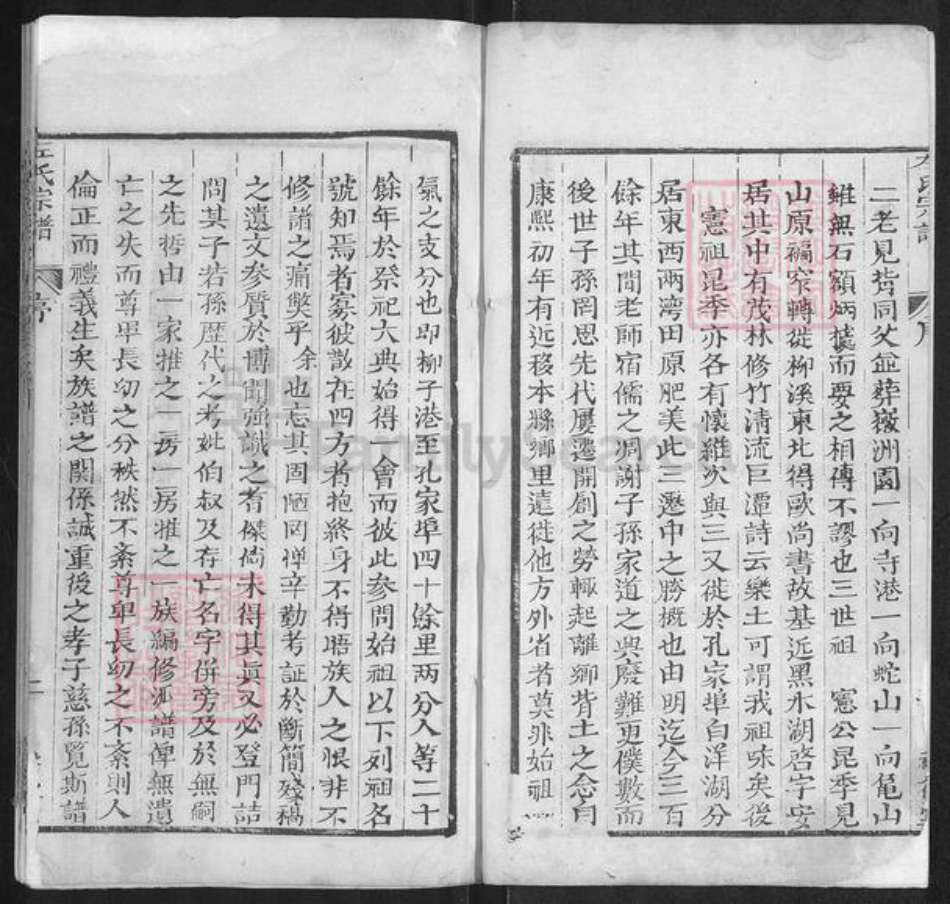 二老見背同父並葬嶽洲園一向寺港一向蛇山一向龜山
雖無石額炳據而要之相傳不謬也三世祖　憲公昆季見
山原褊窄轉徙柳溪東北得歐尚書故基近黑水湖啓字安
居其中有茂林修竹清流巨潭詩云樂土可謂我祖咏矣後
憲祖昆季亦各有懷維次與三又徙於孔家埠白洋湖分
居東西兩湾田原肥美此三遷中之勝概也由明迄今三百
餘年其間老師宿儒之凋謝子孫家道之興廢難更僕數而
後世子孫罔思先代屢遷開創之勞輒起離鄉背土之念自
康熙初年有近移本縣鄉里遠徙他方外省者莫非始祖
氣之支分也即柳子港至孔家埠四十餘里两分人等二十
餘年於祭祀大典始得一會而彼此参問始祖以下列祖名
號知焉者寡彼散在四方者抱終身不得晤族人之恨非不
修譜之痛獘乎余也忘其固陋罔憚辛勤考証於断簡殘稿
之遺文参質於博聞強識之耆傑尚未得其眞又必登門詰
問其子若孫歷代之考妣伯叔及存亡名字併旁及於無嗣
之先哲由一家推之一房一房推之一族編修此譜俾無遺
亡之失而尊卑長幼之分秩然不紊尊卑長幼之不紊則人
倫正而禮義生矣族譜之関係誠重後之孝子慈孫覽斯譜
左氏宗譜
序
二